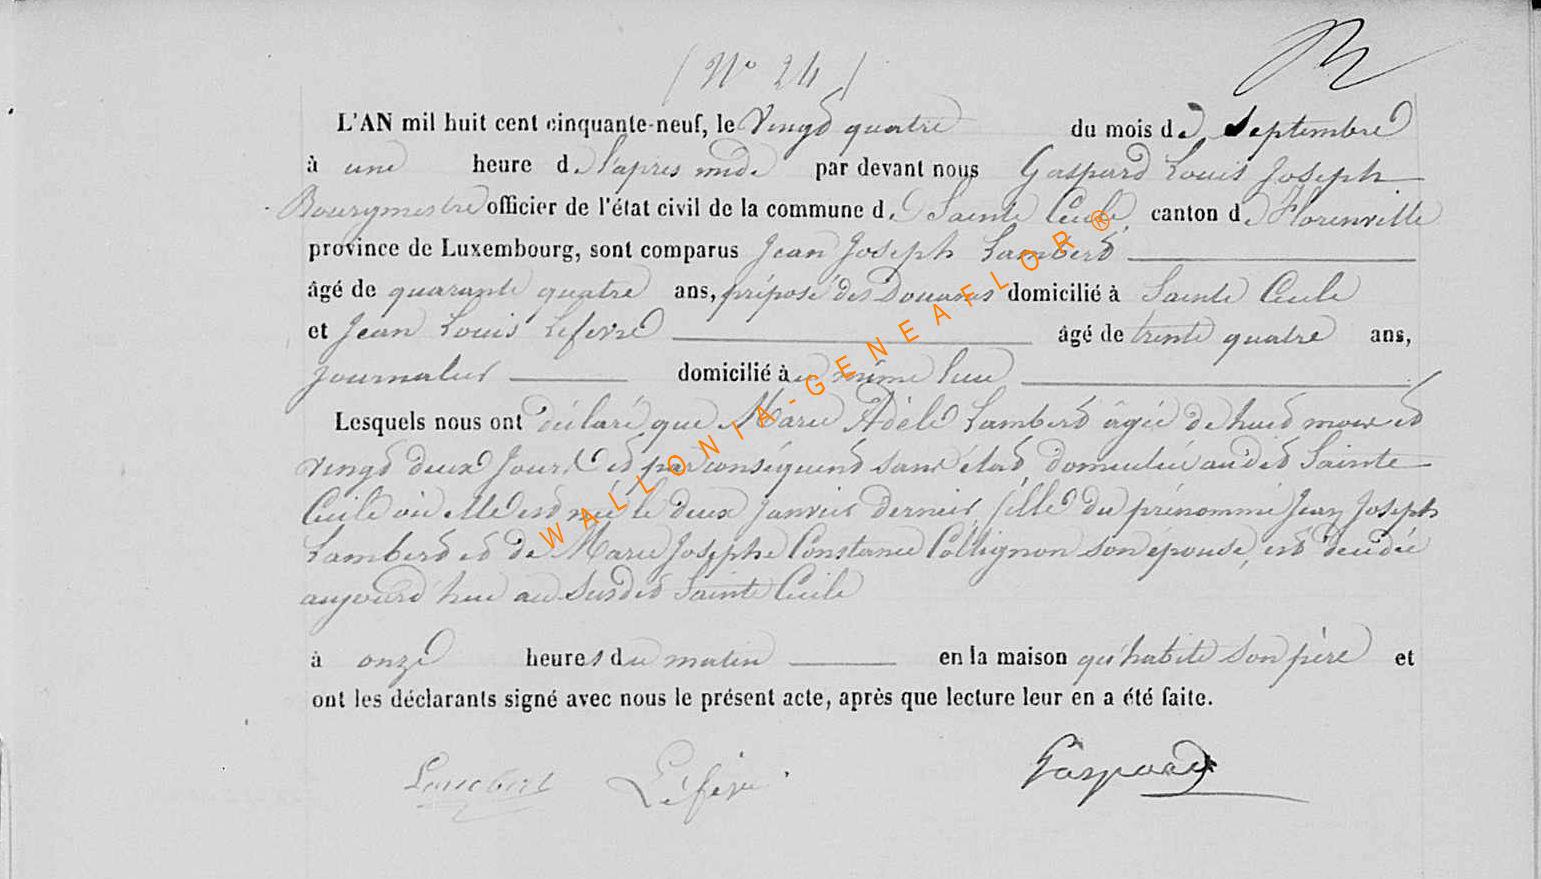 (N° 24)
L'AN mil huit cent cinquante-neuf, le Vingt quatre du mois de Septembre
à une heure de l'apres midi par devant nous Gaspard Louis Joseph
Bourgmestre officier de l'état civil de la commune de Sainte Cecile canton de Florenville
province de Luxembourg, sont comparus Jean Joseph Lambert
âgé de quarante quatre ans, préposé des Douanes domicilié à Sainte Cecile
et Jean Louis Lefevre âgé de trente quatre ans,
journalier domicilié à même lieu
Lesquels nous ont déclaré que Marie Adèle Lambert âgée de huit mois et
vingt deux jours et par conséquent sans état, domiciliée audit Sainte
Cecile où elle est née le deux janvier dernier, fille du prénommé Jean Joseph
Lambert et de Marie Josephe Constance Collignon son epouse, est décédée
aujourd'hui au susdit Sainte Cecile
à onze heures du matin en la maison qu'habite son père et
ont les déclarants signé avec nous le présent acte, après que lecture leur en a été faite.
Lambert Lefevre Gaspard
WALLONIA-GENEAFLOR®